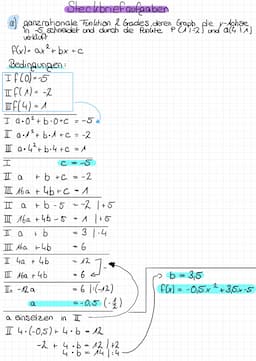 Steckbriefaufgaben
a) ganzrationale Funktion 2. Grades, deren Graph die y-Achse
in -5 schneidet und durch die Punkte P(1|-2) und Q(4|1)
verläuft
f(x) = ax² + bx + c
Bedingungen:
I f(0) = -5
II f(1) = -2
III f(4) = 1
I a·0² + b·0 + c = -5
II a·1² + b·1 + c = -2
III a·4² + b·4 + c = 1
I c = -5
II a + b + c = -2
III 16a + 4b + c = 1
II a + b - 5 = -2 | +5
III 16a + 4b - 5 = 1 | +5
II a + b = 3 | ·4
III 16a + 4b = 6
II 4a + 4b = 12
III 16a + 4b = 6
II - 12a = 6 | :(-12)
a = -0,5 (-½)
a einsetzen in II
II 4·(-0,5) + 4·b = 12
-2 + 4·b = 12 | +2
4·b = 14 | :4
b = 3,5
f(x) = -0,5x² + 3,5x - 5